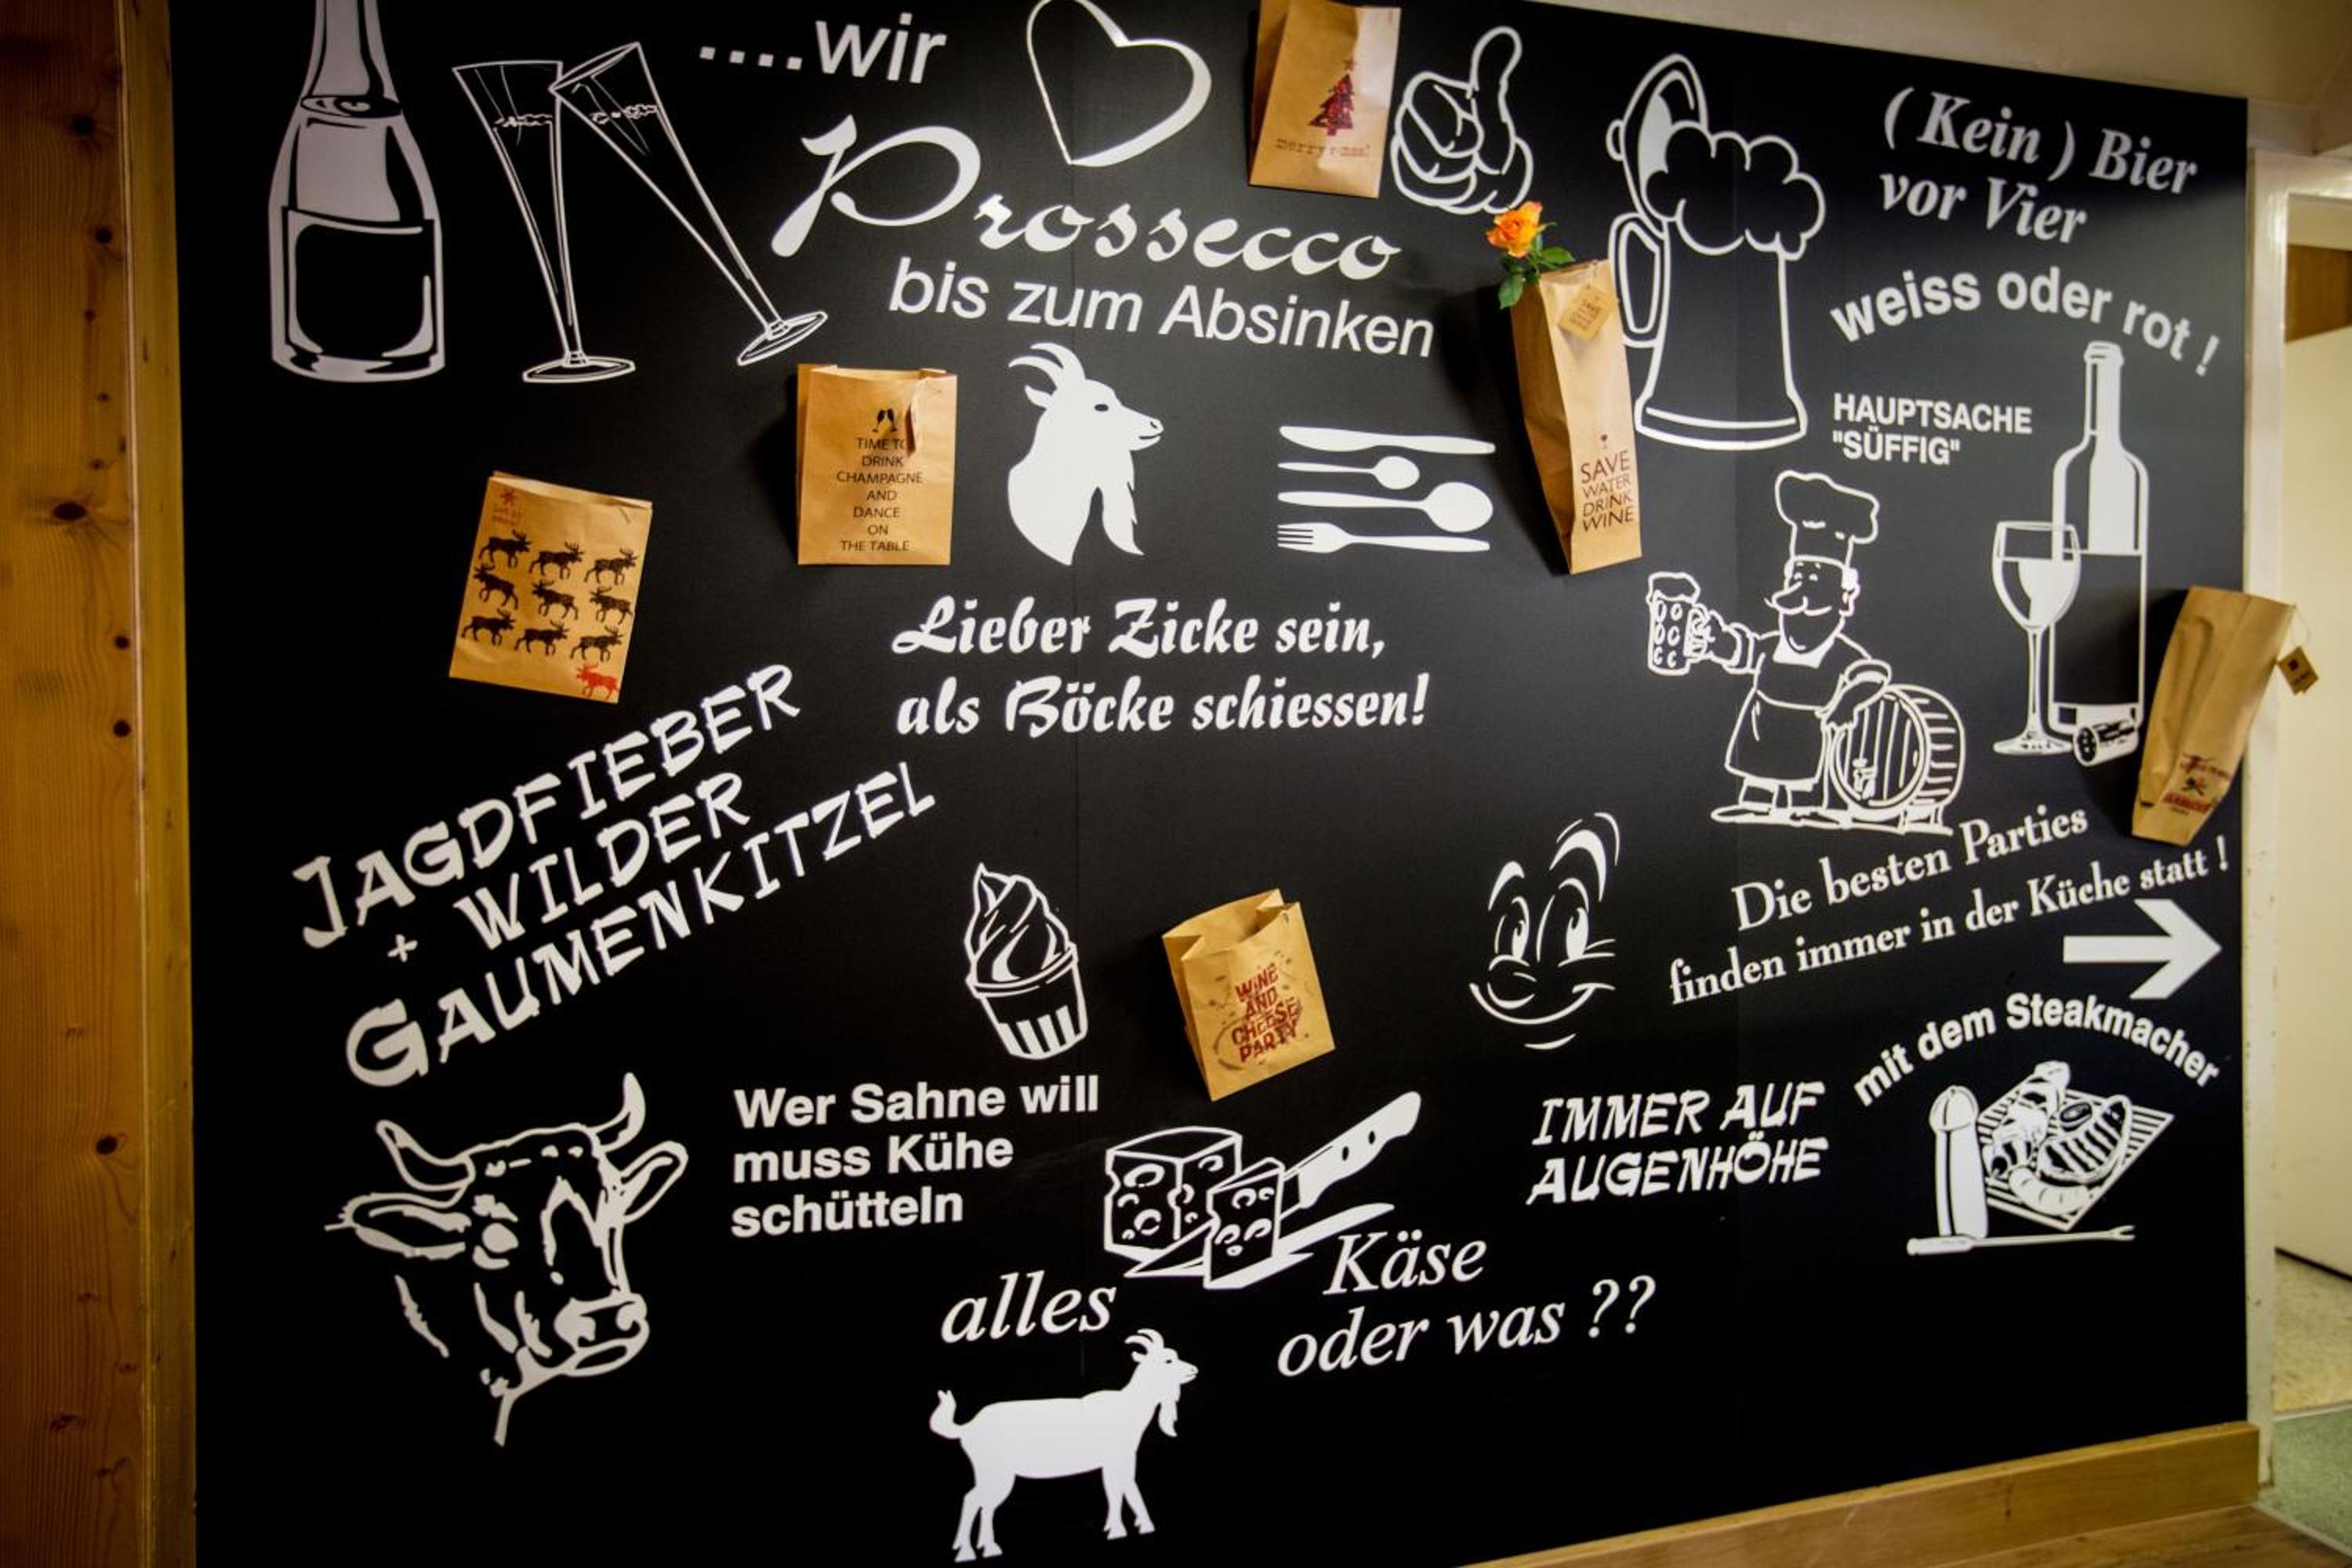 ....wir
Prossecco
bis zum Absinken
merry x-mas!
( Kein ) Bier
vor Vier
weiss oder rot !
HAUPTSACHE
"SÜFFIG"
TIME TO
DRINK
CHAMPAGNE
AND
DANCE
ON
THE TABLE
SAVE
WATER
DRINK
WINE
Lieber Zicke sein,
als Böcke schiessen!
JAGDFIEBER
+ WILDER
GAUMENKITZEL
Die besten Parties
finden immer in der Küche statt !
WINE
AND
CHEESE
PARTY
mit dem Steakmacher
Wer Sahne will
muss Kühe
schütteln
IMMER AUF
AUGENHÖHE
alles
Käse
oder was ??